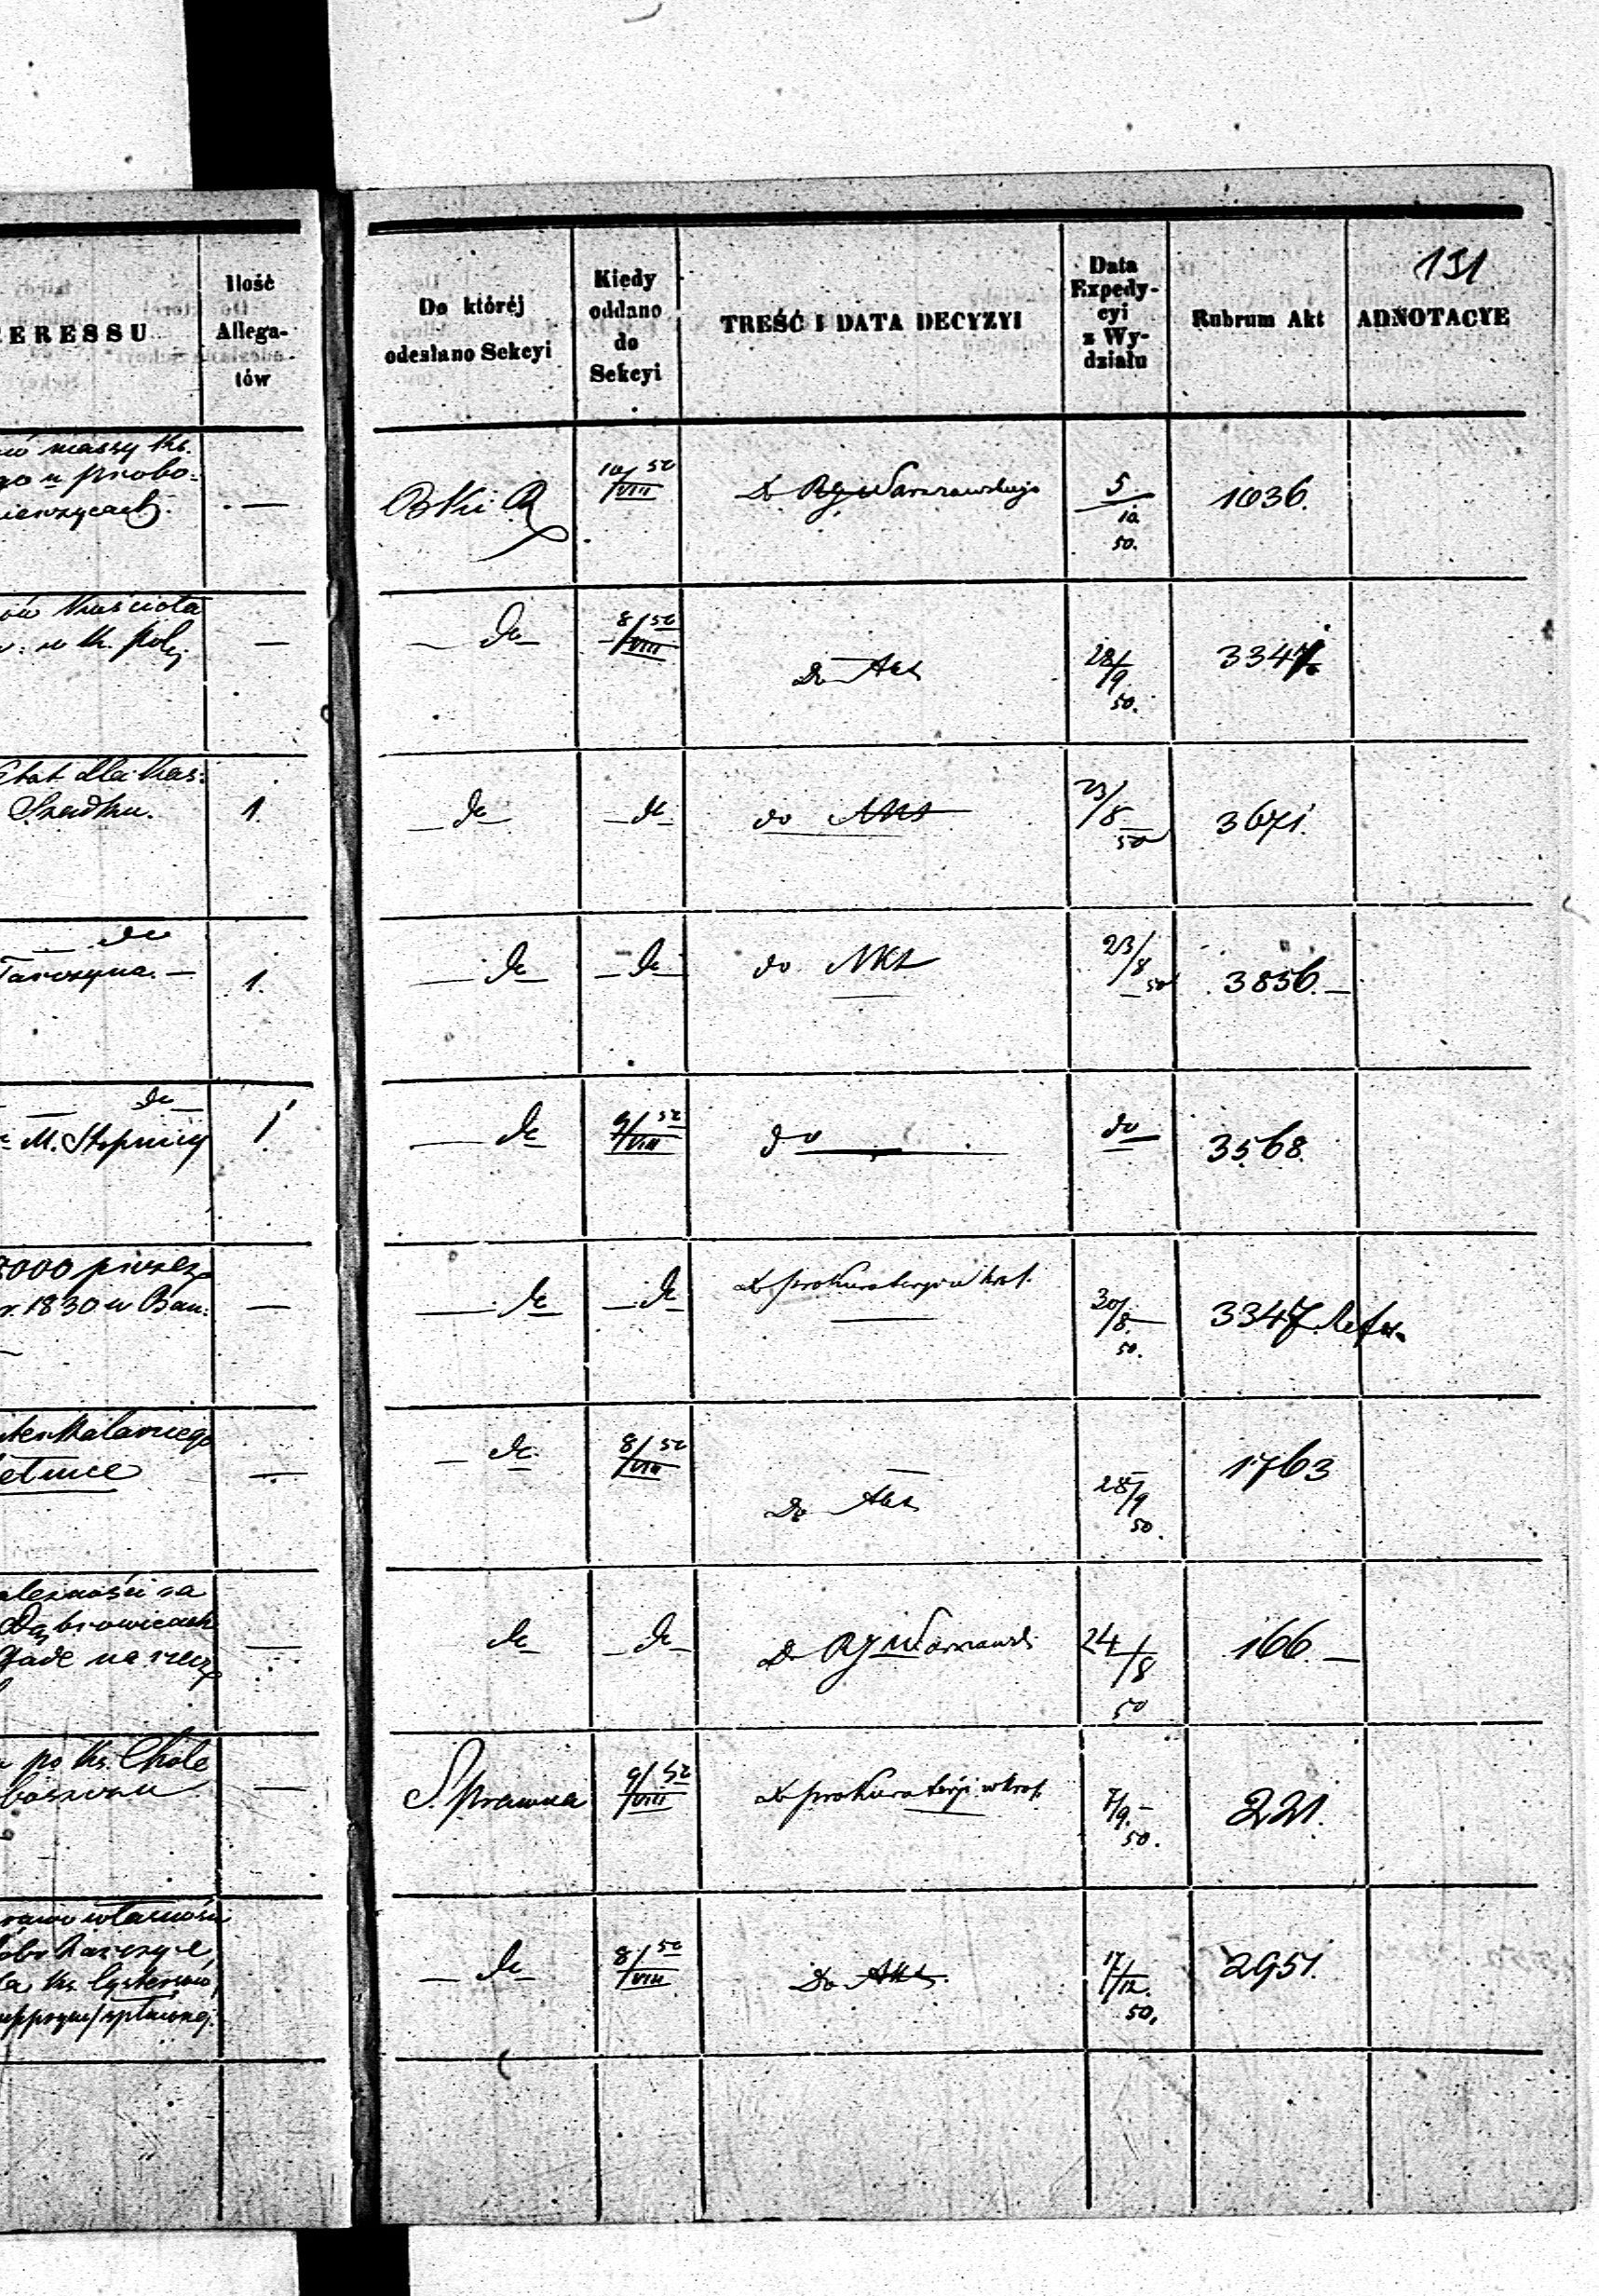 131
ERESSU
Ilość
Allega-
tów
Do któréj
odesłano Sekcyi
Kiedy
oddano
do
Sekcyi
TREŚĆ I DATA DECYZYI
Data
Expedy-
cyi
z Wy-
działu
Rubrum Akt
ADNOTACYE
massy Ks.
go u probo-
—
10/VIII 50
Do RG Warszawskiego
5/10 50.
1036.
Kościoła
w Kr. pols.
—
— do —
8/VIII 50
Do Akt
28/9 50.
3347
Etat dla Kas:
Szadku.
1.
— do —
— do
do Akt
23/8 50
3671.
— do
Tarczyna. —
1.
— do —
— do —
do Akt
23/8 50
3856. —
— do —
M. Stopnicy
1.
— do
9/VIII 50
do
do
3568.
r. 1830 w Ban:
—
— do
— do
do prokuratoryi w król.
30/8 50.
3347.
—
— do
8/VIII 50
Do Akt
28/9 50.
1763
należności za
Dąbrowicach
na rzecz
—
do
— do —
Do RG Warszawski
24/8 50
166. —
po Ks.
—
S. prawna
9/VIII 50
do prokuratoryi w król.
7/9 50.
221.
prawo własności
la Ks. Cystersów
— do
8/VIII 50
Do Akt.
17/12 50.
2951.